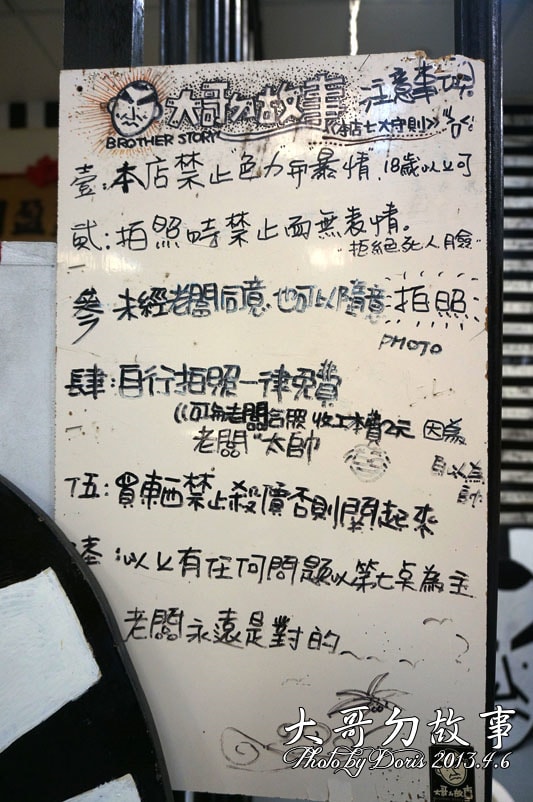 大哥ㄉ故事 注意事項
BROTHER STORY 《本店七大守則》
壹:本店禁止色力和暴情,18歲以上可
貳:拍照時禁止面無表情。
"拒絕死人臉"
參 未經老闆同意,也可以隨意拍照
PHOTO
肆:自行拍照一律免費
((可和老闆合照 收工本費2元 因為
老闆"太帥
自以為
帥
伍:買東西禁止殺價否則關起來
陸:以上有任何問題以第七点為主
老闆永遠是對的~
大哥ㄉ故事
Photo by Doris 2013.4.6
大哥ㄉ故事